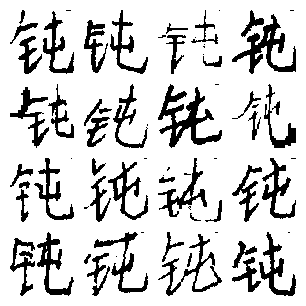 钝钝钝钝
钝钝钝钝
钝钝钝钝
钝钝钝钝